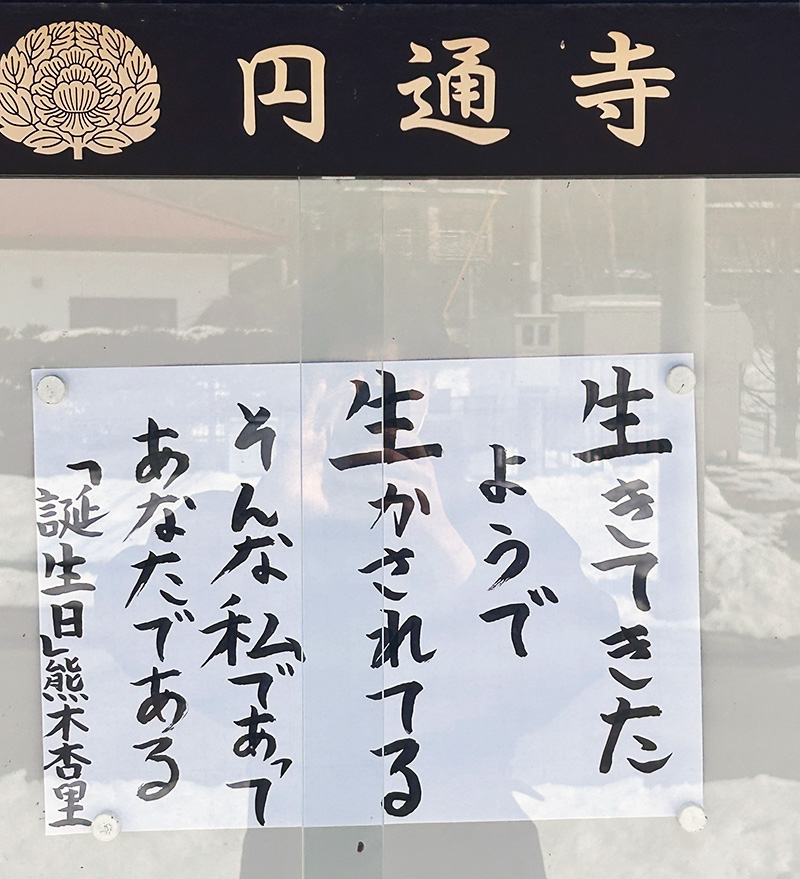 円通寺
生きてきた
ようで
生かされてる
そんな私であって
あなたである
「誕生日」熊木杏里